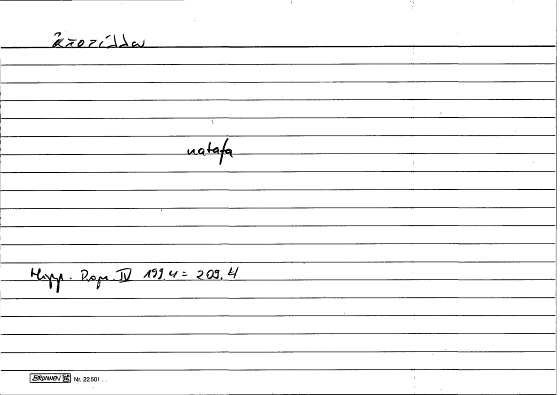 ἀποτίλλω
natafa
Hipp. Progn. IV 199.4 = 209.4
BRUNNEN Nr. 22501